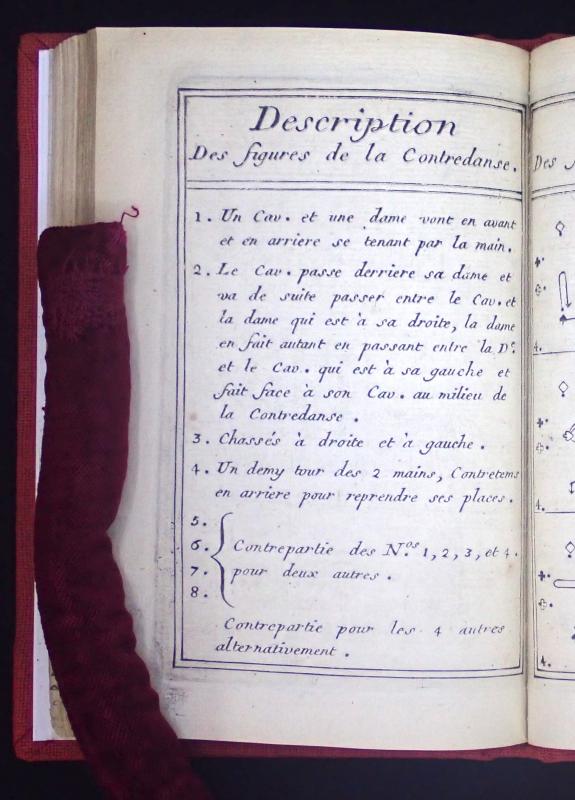 Description
Des figures de la Contredanse.
1. Un Cav. et une dame vont en avant
et en arriere se tenant par la main.
2. Le Cav. passe derriere sa dame et
va de suite passer entre le Cav. et
la dame qui est à sa droite, la dame
en fait autant en passant entre la De.
et le Cav. qui est à sa gauche et
fait face à son Cav. au milieu de
la Contredanse.
3. Chassés à droite et à gauche.
4. Un demy tour des 2 mains, Contretems
en arriere pour reprendre ses places.
5.
6. Contrepartie des Nos. 1, 2, 3, et 4.
7. pour deux autres.
8.
Contrepartie pour les 4 autres
alternativement.
Des
4.
4.
4.